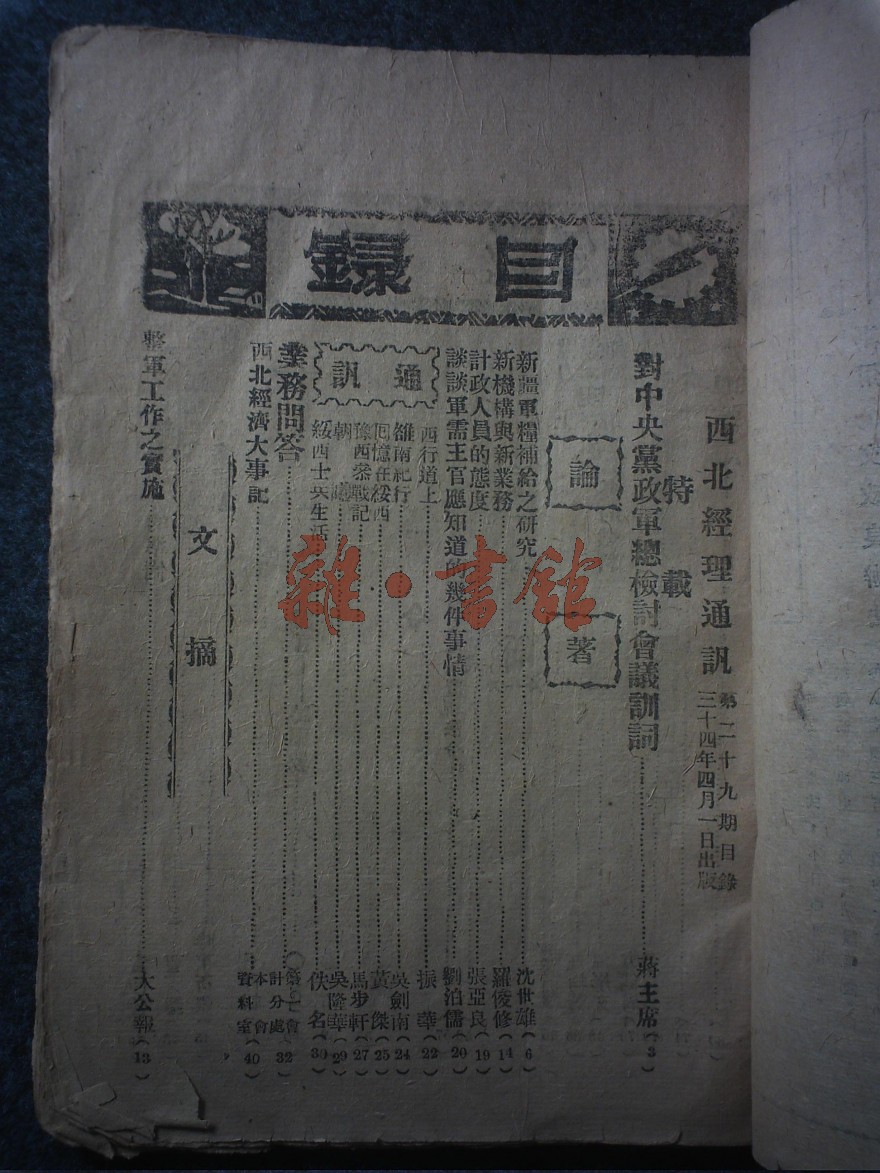 目錄
西北經理通訊 第二十九期目錄
三十四年四月一日出版
特載
對中央黨政軍總檢討會議訓詞 蔣主席(3)
論著
新疆軍糧補給之研究 沈世雄(6)
新機構與新業務 羅俊修(14)
計政人員的態度 張亞良(19)
談談軍需主官應知道的幾件事情 劉泊儒(20)
通訊
西行道上 振華(22)
雒南紀行 吳劍南(24)
回憶在綏西 黃傑(25)
豫西參戰記 馬步軒(27)
吳隆華(29)
綏西士兵生活 佚名(30)
業務問答 會計分處(32)
西北經濟大事記 本會資料室(40)
文摘
整軍工作之實施 大公報(13)
雜·書館